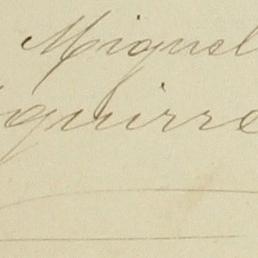 Miguel
Aguirre